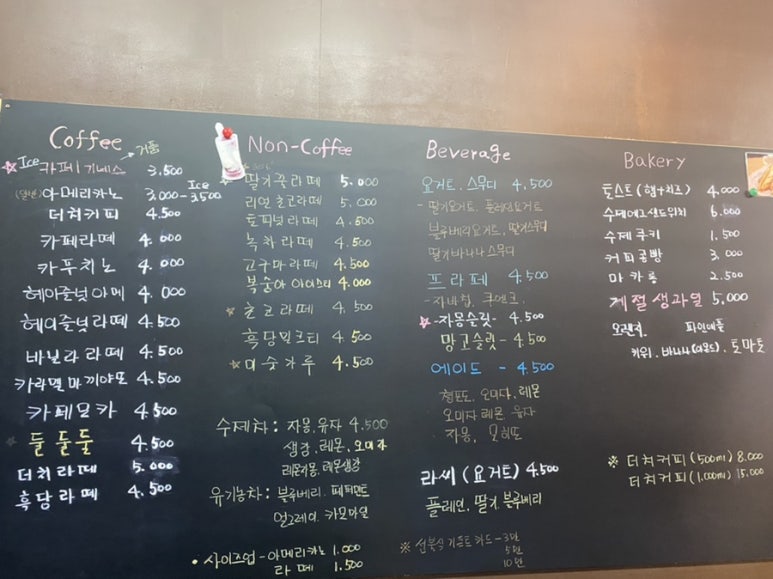 Coffee
거품
Ice 카페기네스 3.500
아메리카노 3.000 - Ice 3.500
더치커피 4.500
카페라떼 4.000
카푸치노 4.000
헤이즐넛아메 4.000
헤이즐넛라떼 4.500
바닐라라떼 4.500
카라멜마끼야또 4.500
카페모카 4.500
둘둘둘 4.500
더치라떼 5.000
흑당라떼 4.500
Non-Coffee
딸기꿀라떼 5.000
리얼초코라떼 5.000
토피넛라떼 4.500
녹차라떼 4.500
고구마라떼 4.500
복숭아아이스티 4.000
초코라떼 4.500
흑당밀크티 4.500
미숫가루 4.500
수제차: 자몽, 유자 4.500
생강, 레몬, 오미자
레몬자몽, 레몬생강
유기농차: 블루베리, 페퍼민트
얼그레이, 카모마일
• 사이즈업 - 아메리카노 1.000
라떼 1.500
Beverage
요거트, 스무디 4.500
- 딸기요거트, 플레인요거트
블루베리요거트, 딸기스무디
딸기바나나스무디
프라페 4.500
- 자바칩, 쿠앤크,
- 자몽슬릿 - 4.500
망고슬릿 - 4.500
에이드 - 4.500
청포도, 오미자, 레몬
오미자레몬, 유자
자몽, 모히또
라씨(요거트) 4.500
플레인, 딸기, 블루베리
기프트카드 - 3만
5만
10만
Bakery
토스트(햄+치즈) 4.000
수제에그샌드위치 6.000
수제쿠키 1.500
커피콩빵 3.000
마카롱 2.500
계절생과일 5.000
오렌지, 파인애플
키위, 바나나(아몬드), 토마토
※ 더치커피(500ml) 8.000
더치커피(1.000ml) 15.000